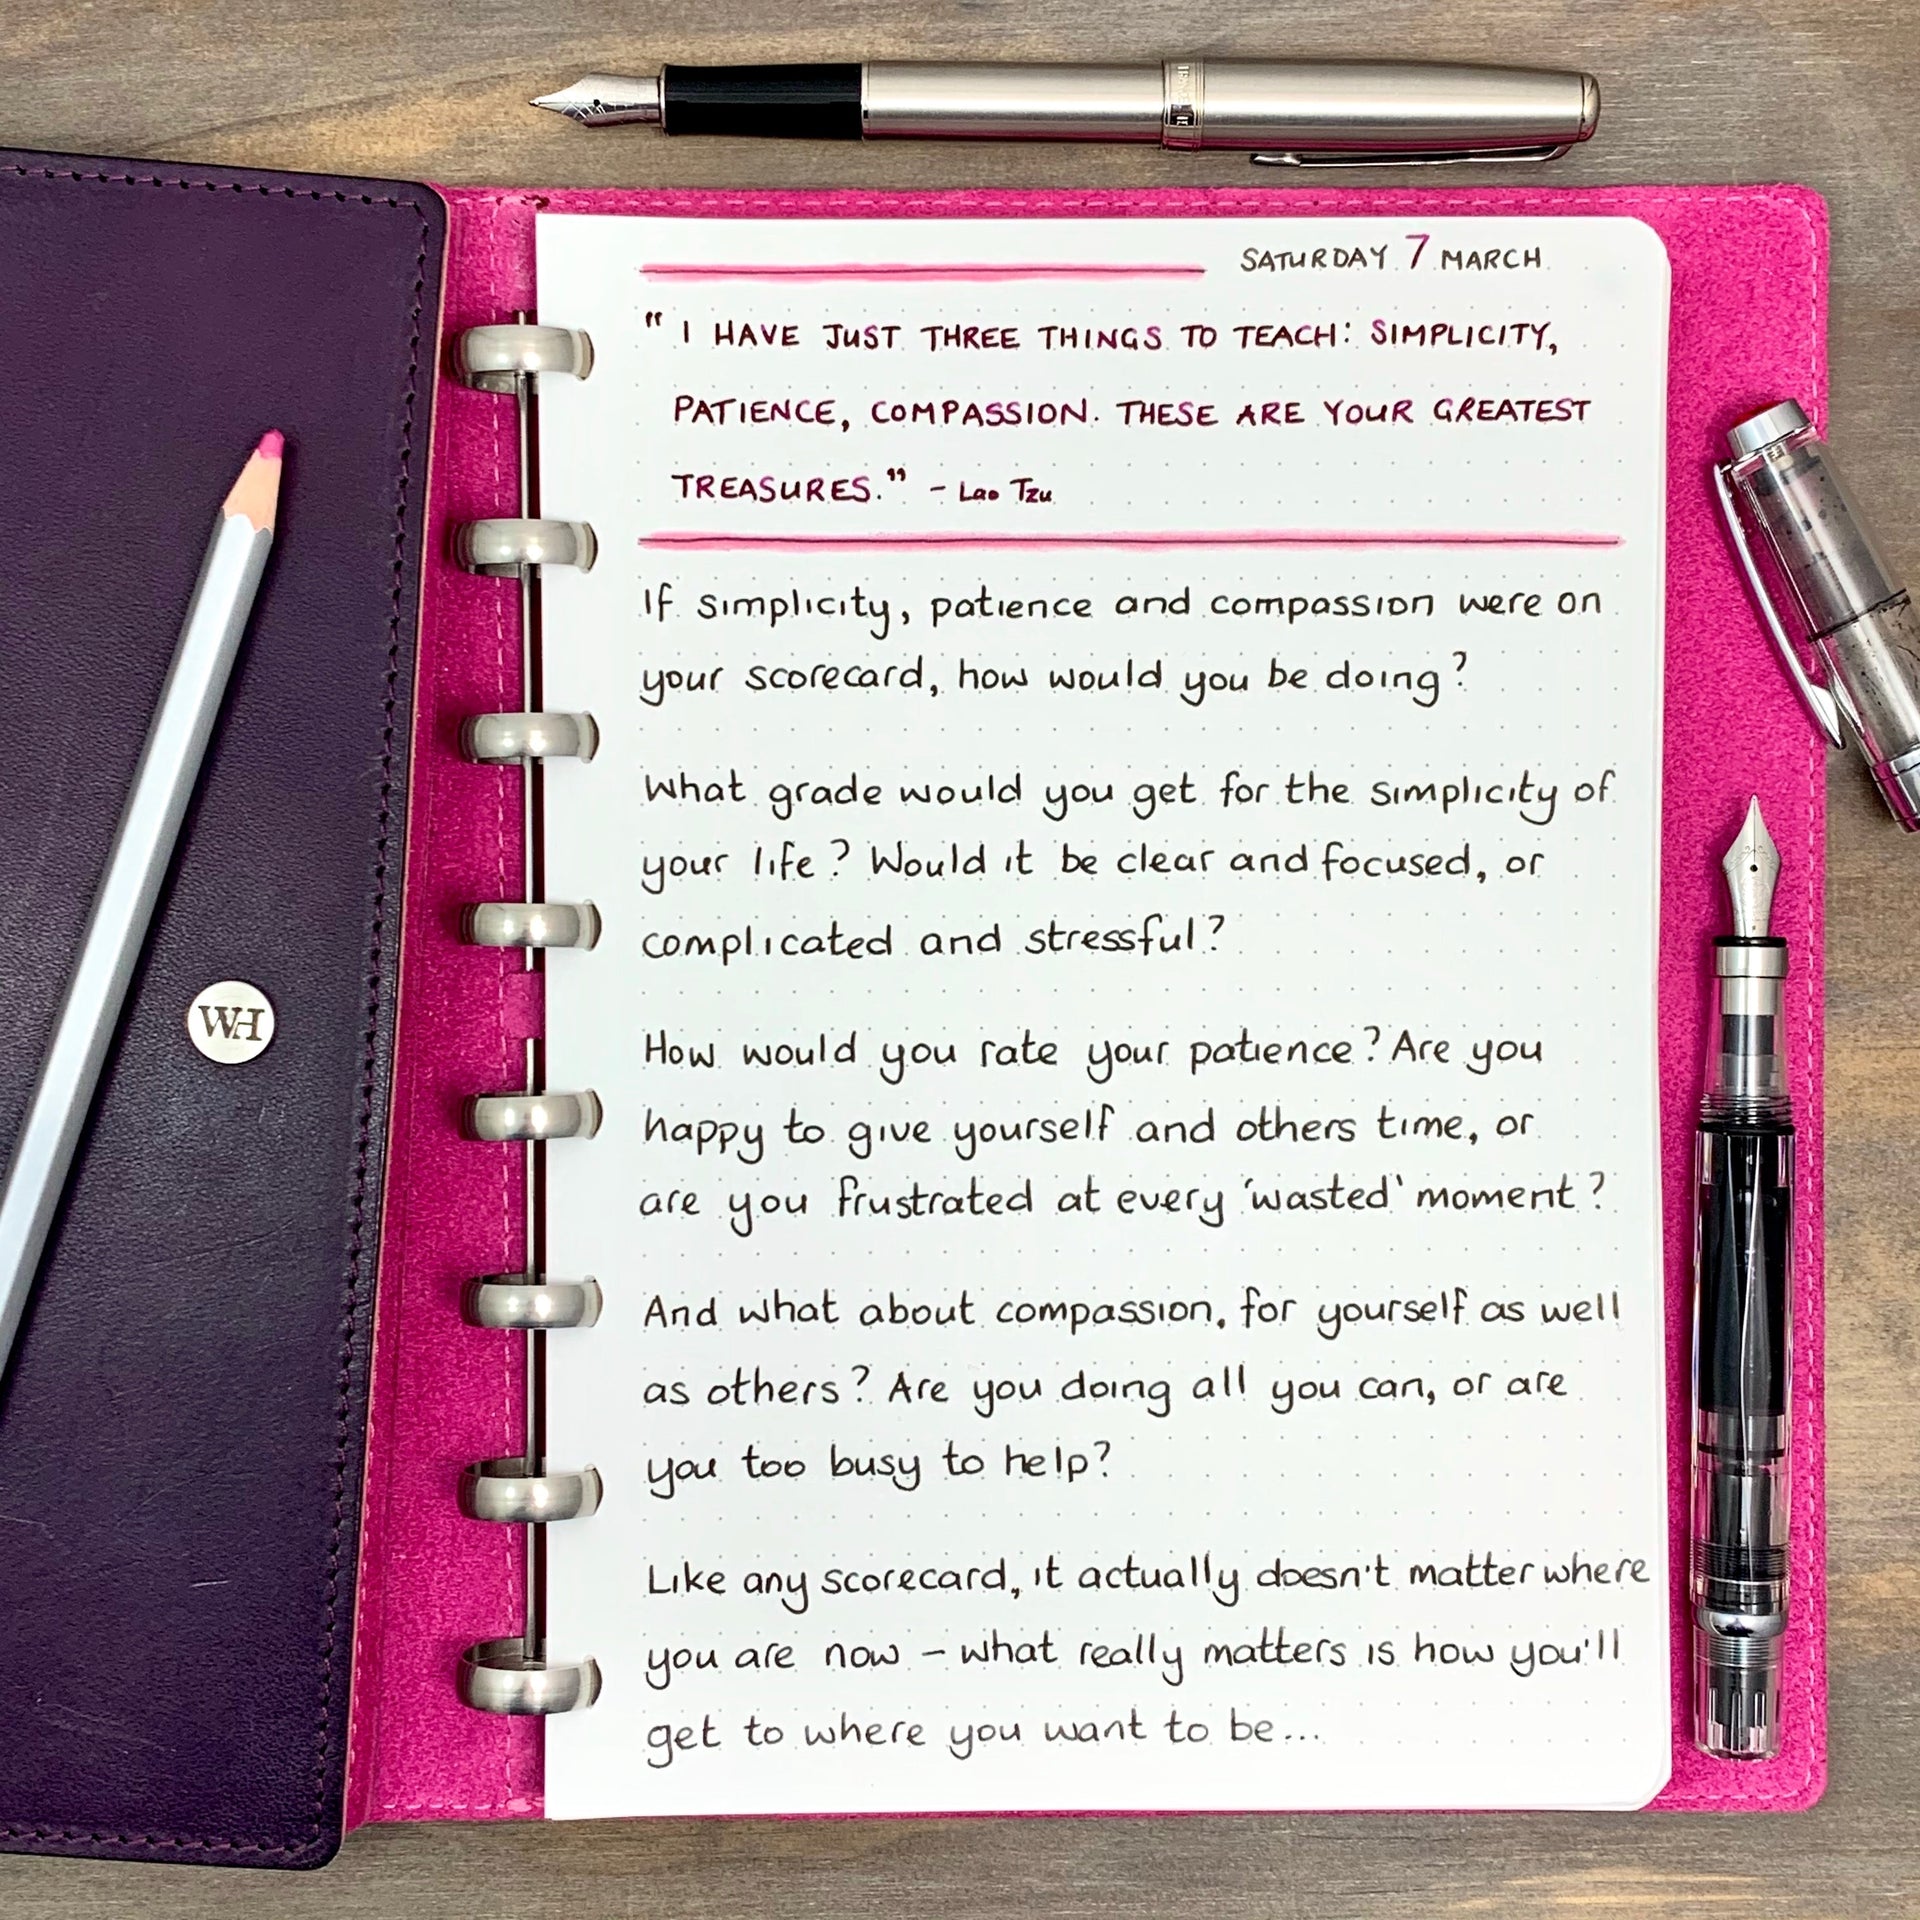 SATURDAY 7 MARCH
" I HAVE JUST THREE THINGS TO TEACH: SIMPLICITY,
PATIENCE, COMPASSION. THESE ARE YOUR GREATEST
TREASURES." - Lao Tzu
If simplicity, patience and compassion were on
your scorecard, how would you be doing?
What grade would you get for the simplicity of
your life? Would it be clear and focused, or
complicated and stressful?
How would you rate your patience? Are you
happy to give yourself and others time, or
are you frustrated at every 'wasted' moment?
And what about compassion, for yourself as well
as others? Are you doing all you can, or are
you too busy to help?
Like any scorecard, it actually doesn't matter where
you are now – what really matters is how you'll
get to where you want to be...
WH